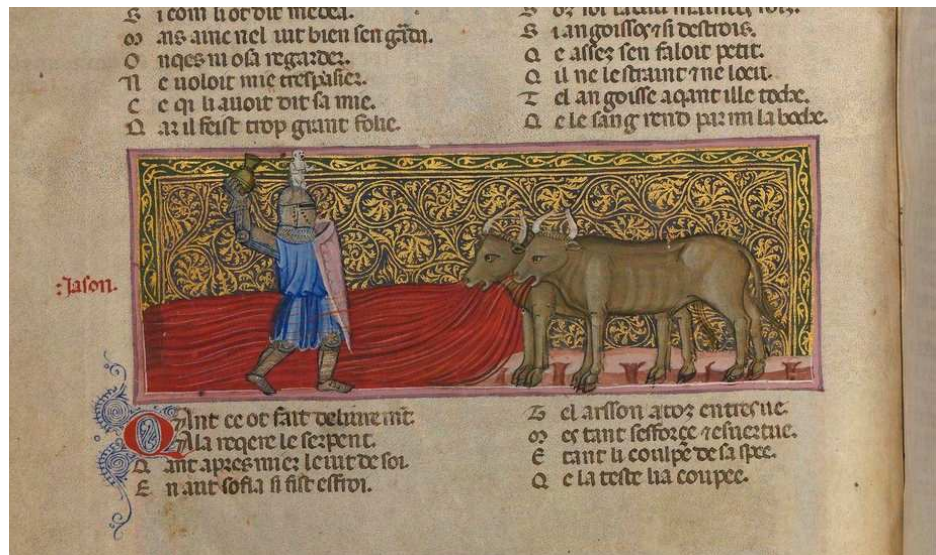 ais ainc nel uit bien sen gardn.
O nqes ni osa regarder.
N e uoloit mie trespasser.
C e qi li auoit dit sa mie.
Q ar il feist trop grant folie.
S i angoissex & si destrois.
Q e assez sen faloit petit.
Q il ne lestraint & ne locit.
T el angoisse aqant ille toche.
Q e le sang rend par mi la boche.
:Jason.
Qant ce ot fait de lune mt.
Ala reqere le serpent.
Q ant apres mier le uit de soi.
E n aut sofla si fist effroi.
T el arsson a toz entresue.
M es tant sefforce & esuertue.
E tant li coulpe de sa spee.
Q e la teste li a coupee.